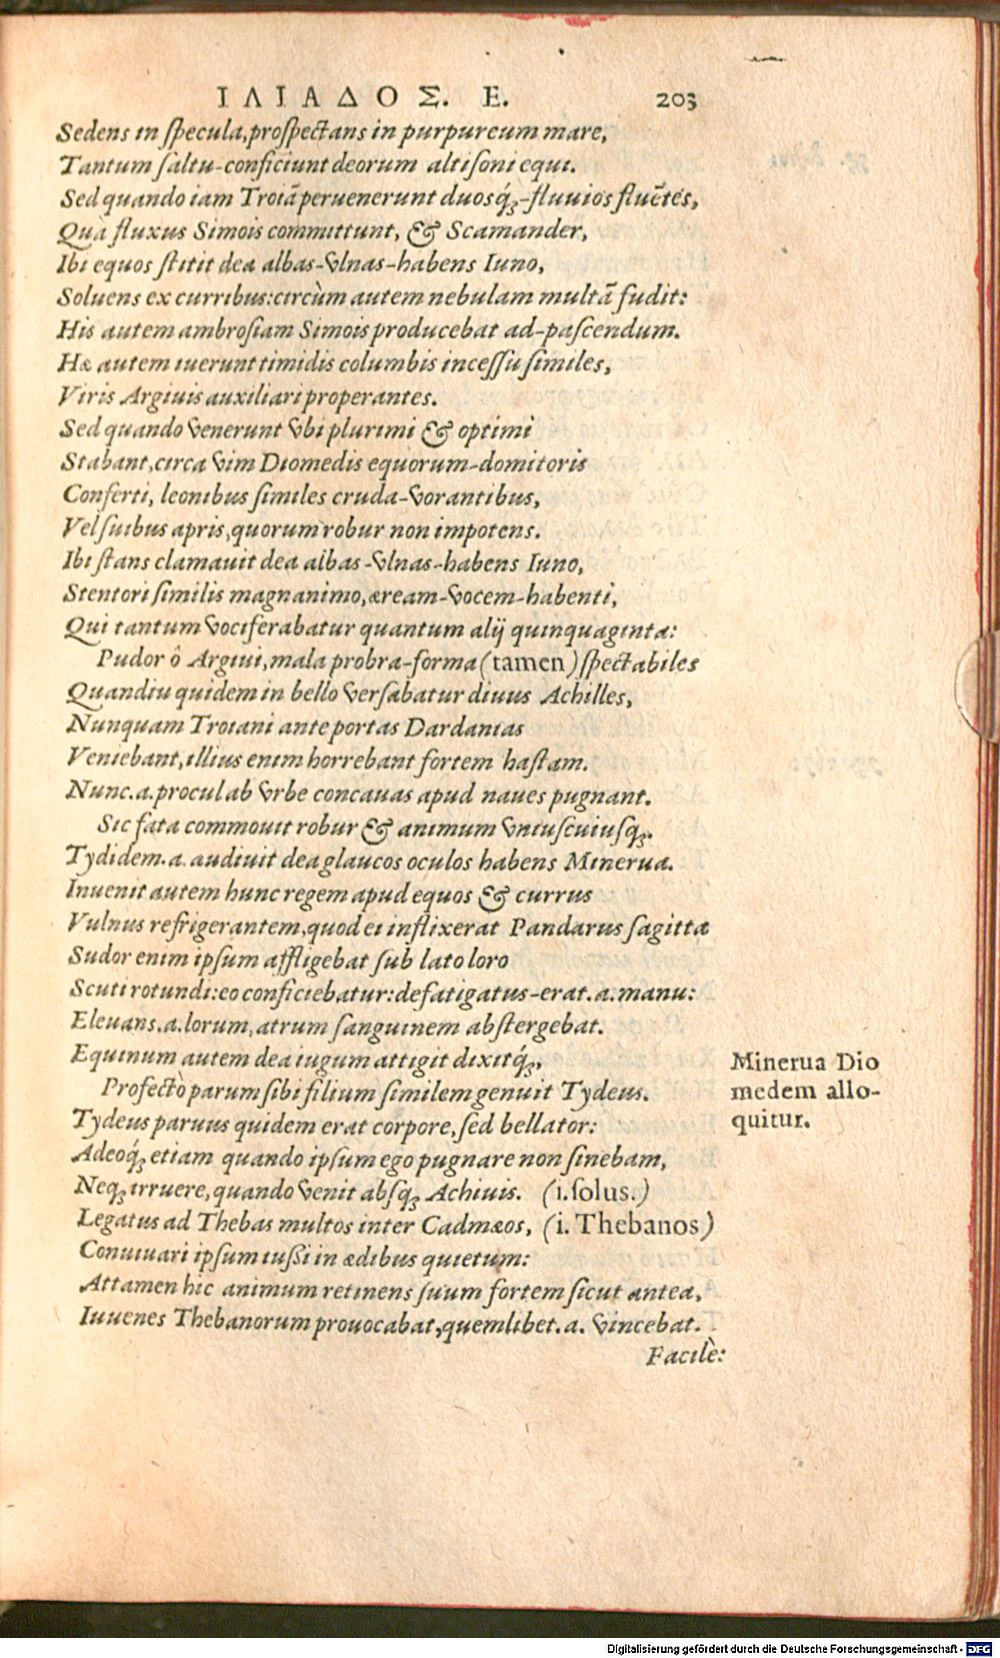 ΙΛΙΑΔΟΣ. Ε. 203
Sedens in specula, prospectans in purpureum mare,
Tantum saltu-conficiunt deorum altisoni equi.
Sed quando iam Troiā peruenerunt duosq́;-fluuios fluētes,
Quà fluxus Simois committunt, & Scamander,
Ibi equos stitit dea albas-vlnas-habens Iuno,
Soluens ex curribus: circùm autem nebulam multā fudit:
His autem ambrosiam Simois producebat ad-pascendum.
Hæ autem iuerunt timidis columbis incessu similes,
Viris Argiuis auxiliari properantes.
Sed quando venerunt vbi plurimi & optimi
Stabant, circa vim Diomedis equorum-domitoris
Conferti, leonibus similes cruda-vorantibus,
Vel suibus apris, quorum robur non impotens.
Ibi stans clamauit dea albas-vlnas-habens Iuno,
Stentori similis magnanimo, æream-vocem-habenti,
Qui tantum vociferabatur quantum alij quinquaginta:
Pudor ô Argiui, mala probra-forma (tamen) spectabiles
Quandiu quidem in bello versabatur diuus Achilles,
Nunquam Troiani ante portas Dardanias
Veniebant, illius enim horrebant fortem hastam.
Nunc.a. procul ab vrbe concauas apud naues pugnant.
Sic fata commouit robur & animum vniuscuiusq;.
Tydidem.a. audiuit dea glaucos oculos habens Minerua.
Inuenit autem hunc regem apud equos & currus
Vulnus refrigerantem, quod ei inflixerat Pandarus sagitta
Sudor enim ipsum affligebat sub lato loro
Scuti rotundi: eo conficiebatur: defatigatus-erat.a. manu:
Eleuans.a. lorum, atrum sanguinem abstergebat.
Equinum autem dea iugum attigit dixitq́;,
Minerua Dio
medem allo-
quitur.
Profectò parum sibi filium similem genuit Tydeus.
Tydeus paruus quidem erat corpore, sed bellator:
Adeoq́; etiam quando ipsum ego pugnare non sinebam,
Neq; irruere, quando venit absq; Achiuis. (i. solus.)
Legatus ad Thebas multos inter Cadmæos, (i. Thebanos)
Conuiuari ipsum iußi in ædibus quietum:
Attamen hic animum retinens suum fortem sicut antea,
Iuuenes Thebanorum prouocabat, quemlibet.a. vincebat.
Facilè:
Digitalisierung gefördert durch die Deutsche Forschungsgemeinschaft - DFG